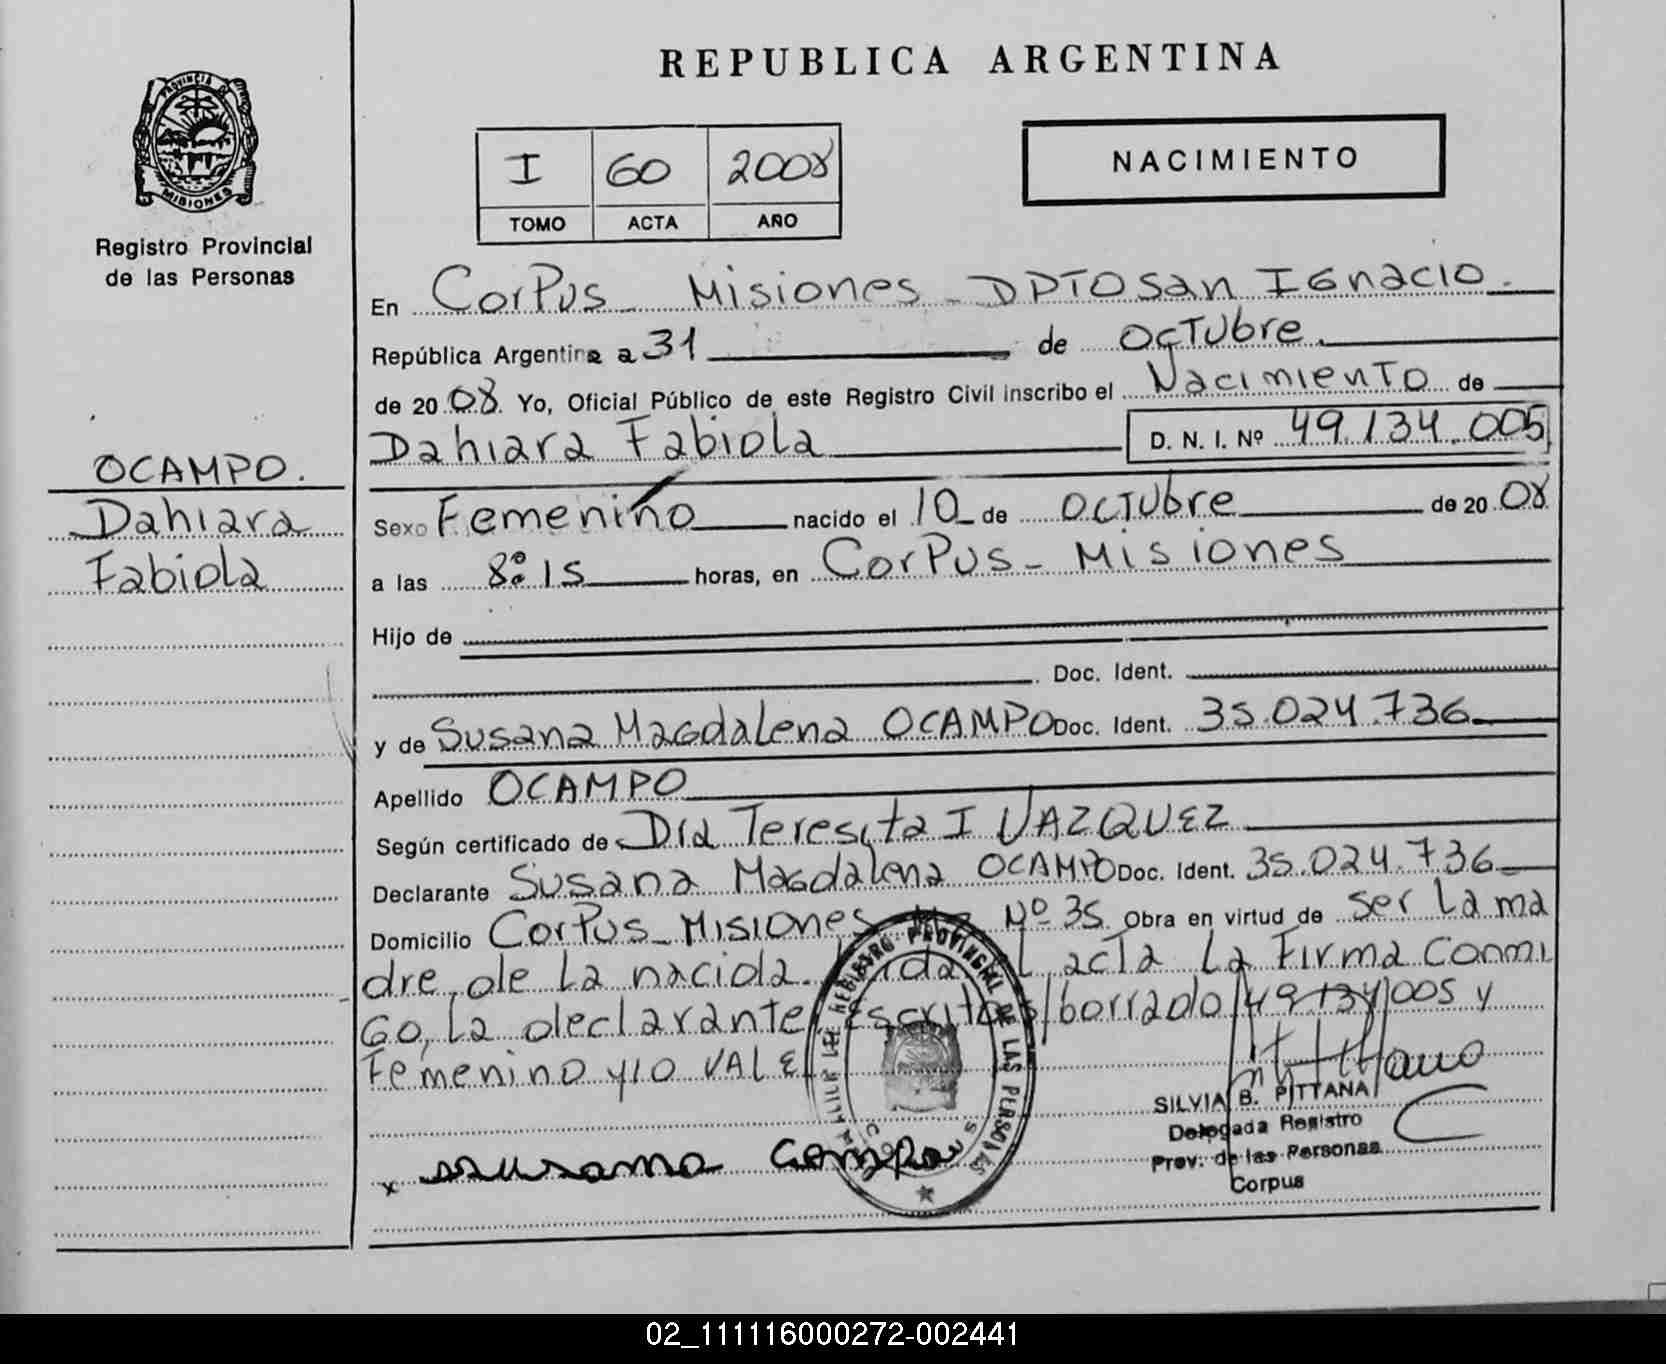 REPUBLICA ARGENTINA
PROVINCIA DE MISIONES
Registro Provincial
de las Personas
I 60 2008
TOMO ACTA AÑO
NACIMIENTO
En Corpus - Misiones - DPTO San Ignacio.
República Argentina a 31 de Octubre.
de 2008. Yo, Oficial Público de este Registro Civil inscribo el Nacimiento de
Dahiara Fabiola D. N. I. Nº 49.134.005
OCAMPO.
Dahiara
Fabiola
Sexo Femenino nacido el 10 de Octubre de 2008
a las 8:15 horas, en Corpus - Misiones
Hijo de
Doc. Ident.
y de Susana Magdalena OCAMPO Doc. Ident. 35.024.736
Apellido OCAMPO
Según certificado de Dra Teresita I VAZQUEZ
Declarante Susana Magdalena OCAMPO Doc. Ident. 35.024.736
Domicilio Corpus - Misiones Nº 35 Obra en virtud de ser La ma
dre de La nacida. acta La Firma Conmi
Go, La declarante, Escrito s/borrado 49.134.005 y
Femenino y 10 VALE
REGISTRO PROVINCIAL DE LAS PERSONAS
CORPUS
SILVIA B. PITTANA
Delegada Registro
Prov. de las Personas
Corpus
02_111116000272-002441